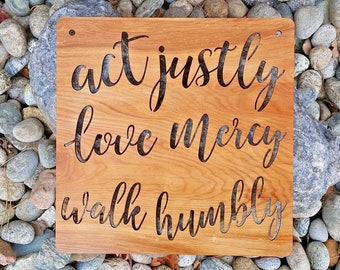 act justly
love Mercy
walk humbly